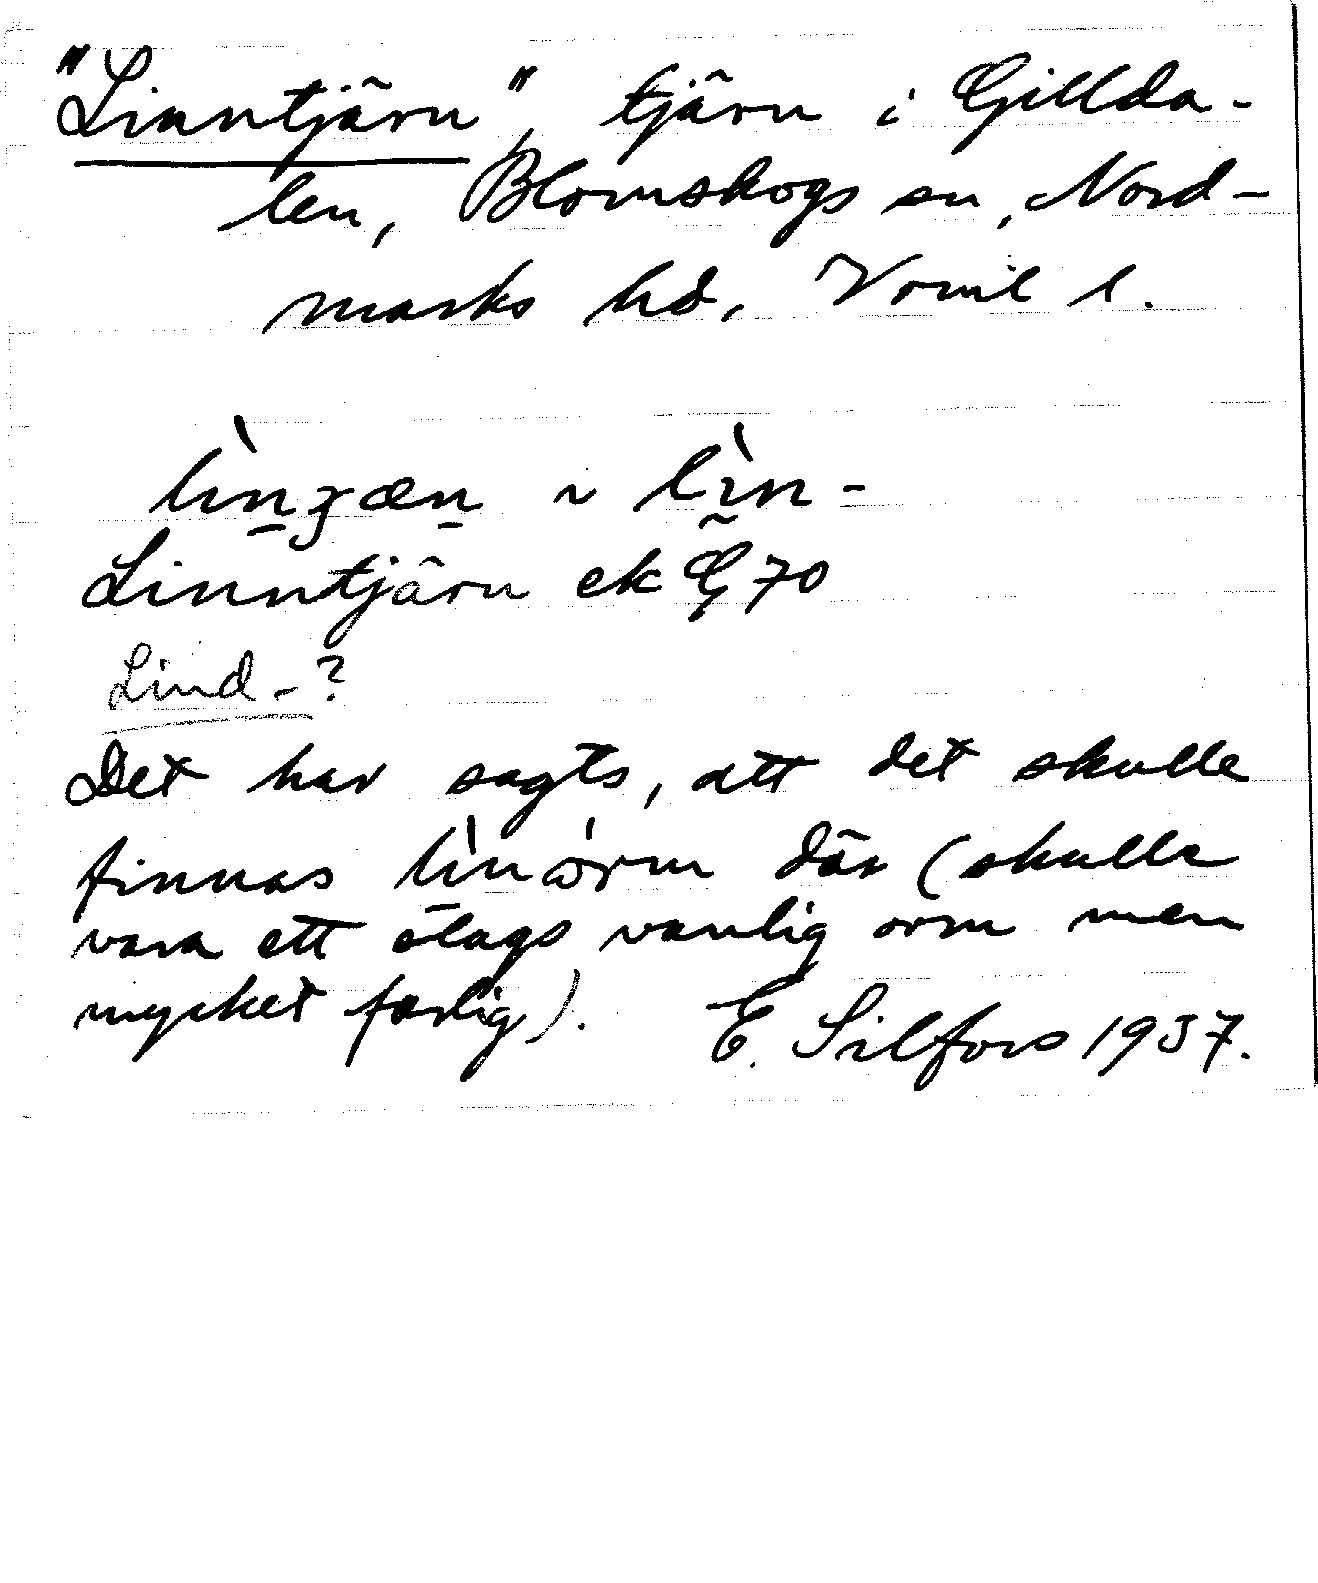 "Linntjärn", tjärn i Gillda-
len, Blomskogs sn, Nord-
marks hd, Vrml l.
lìnʒæn ~ lìn-
Linntjärn ek G 70
Lind-?
Det har sagts, att det skulle
finnas lìnòrm där (skulle
vara ett slags vanlig orm men
mycket farlig). E. Silfors 1937.